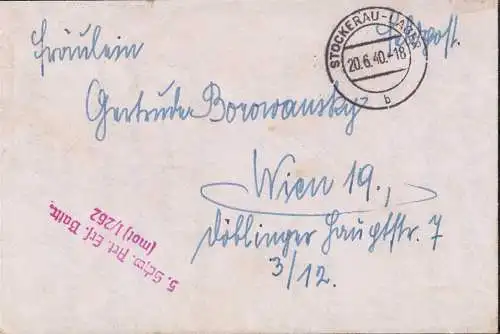 Feldpost.
STOCKERAU-LAGER
20.6.40.-18
b
Fräulein
Gertrude Borowansky
Wien 19.,
Döblinger Hauptstr. 7
3/12.
5. Schw. Art. Ers. Battr.
(mot) I/262